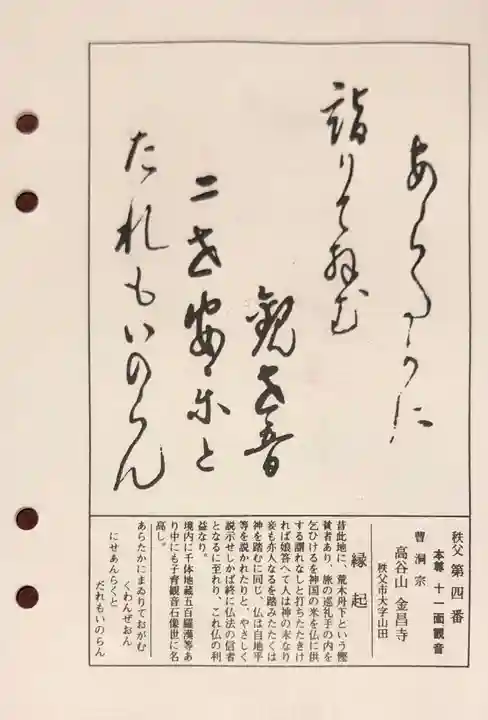 あらたかに
詣りておがむ
観世音
二世安楽と
たれもいのらん
秩父 第四番
本尊 十一面観音
曹洞宗
高谷山 金昌寺
秩父市大字山田
縁起
昔此地に、荒木丹下という慳
貪者あり、旅の巡礼手の内を
乞ひけるを神国の米を仏に供
する謂れなしと打ちたたきけ
れば娘答へて人は神の末なり
妾も亦人なるを踏みたたくは
神を踏むに同じ、仏は自地平
等を説かれたりと、やさしく
説示せしかば終に仏法の信者
となるに至れり、これ仏の利
益なり。
境内に千体地蔵五百羅漢等あ
り中にも子育観音石像世に名
高し。
あらたかにまゐりておがむ
くわんぜおん
にせあんらくと
だれもいのらん